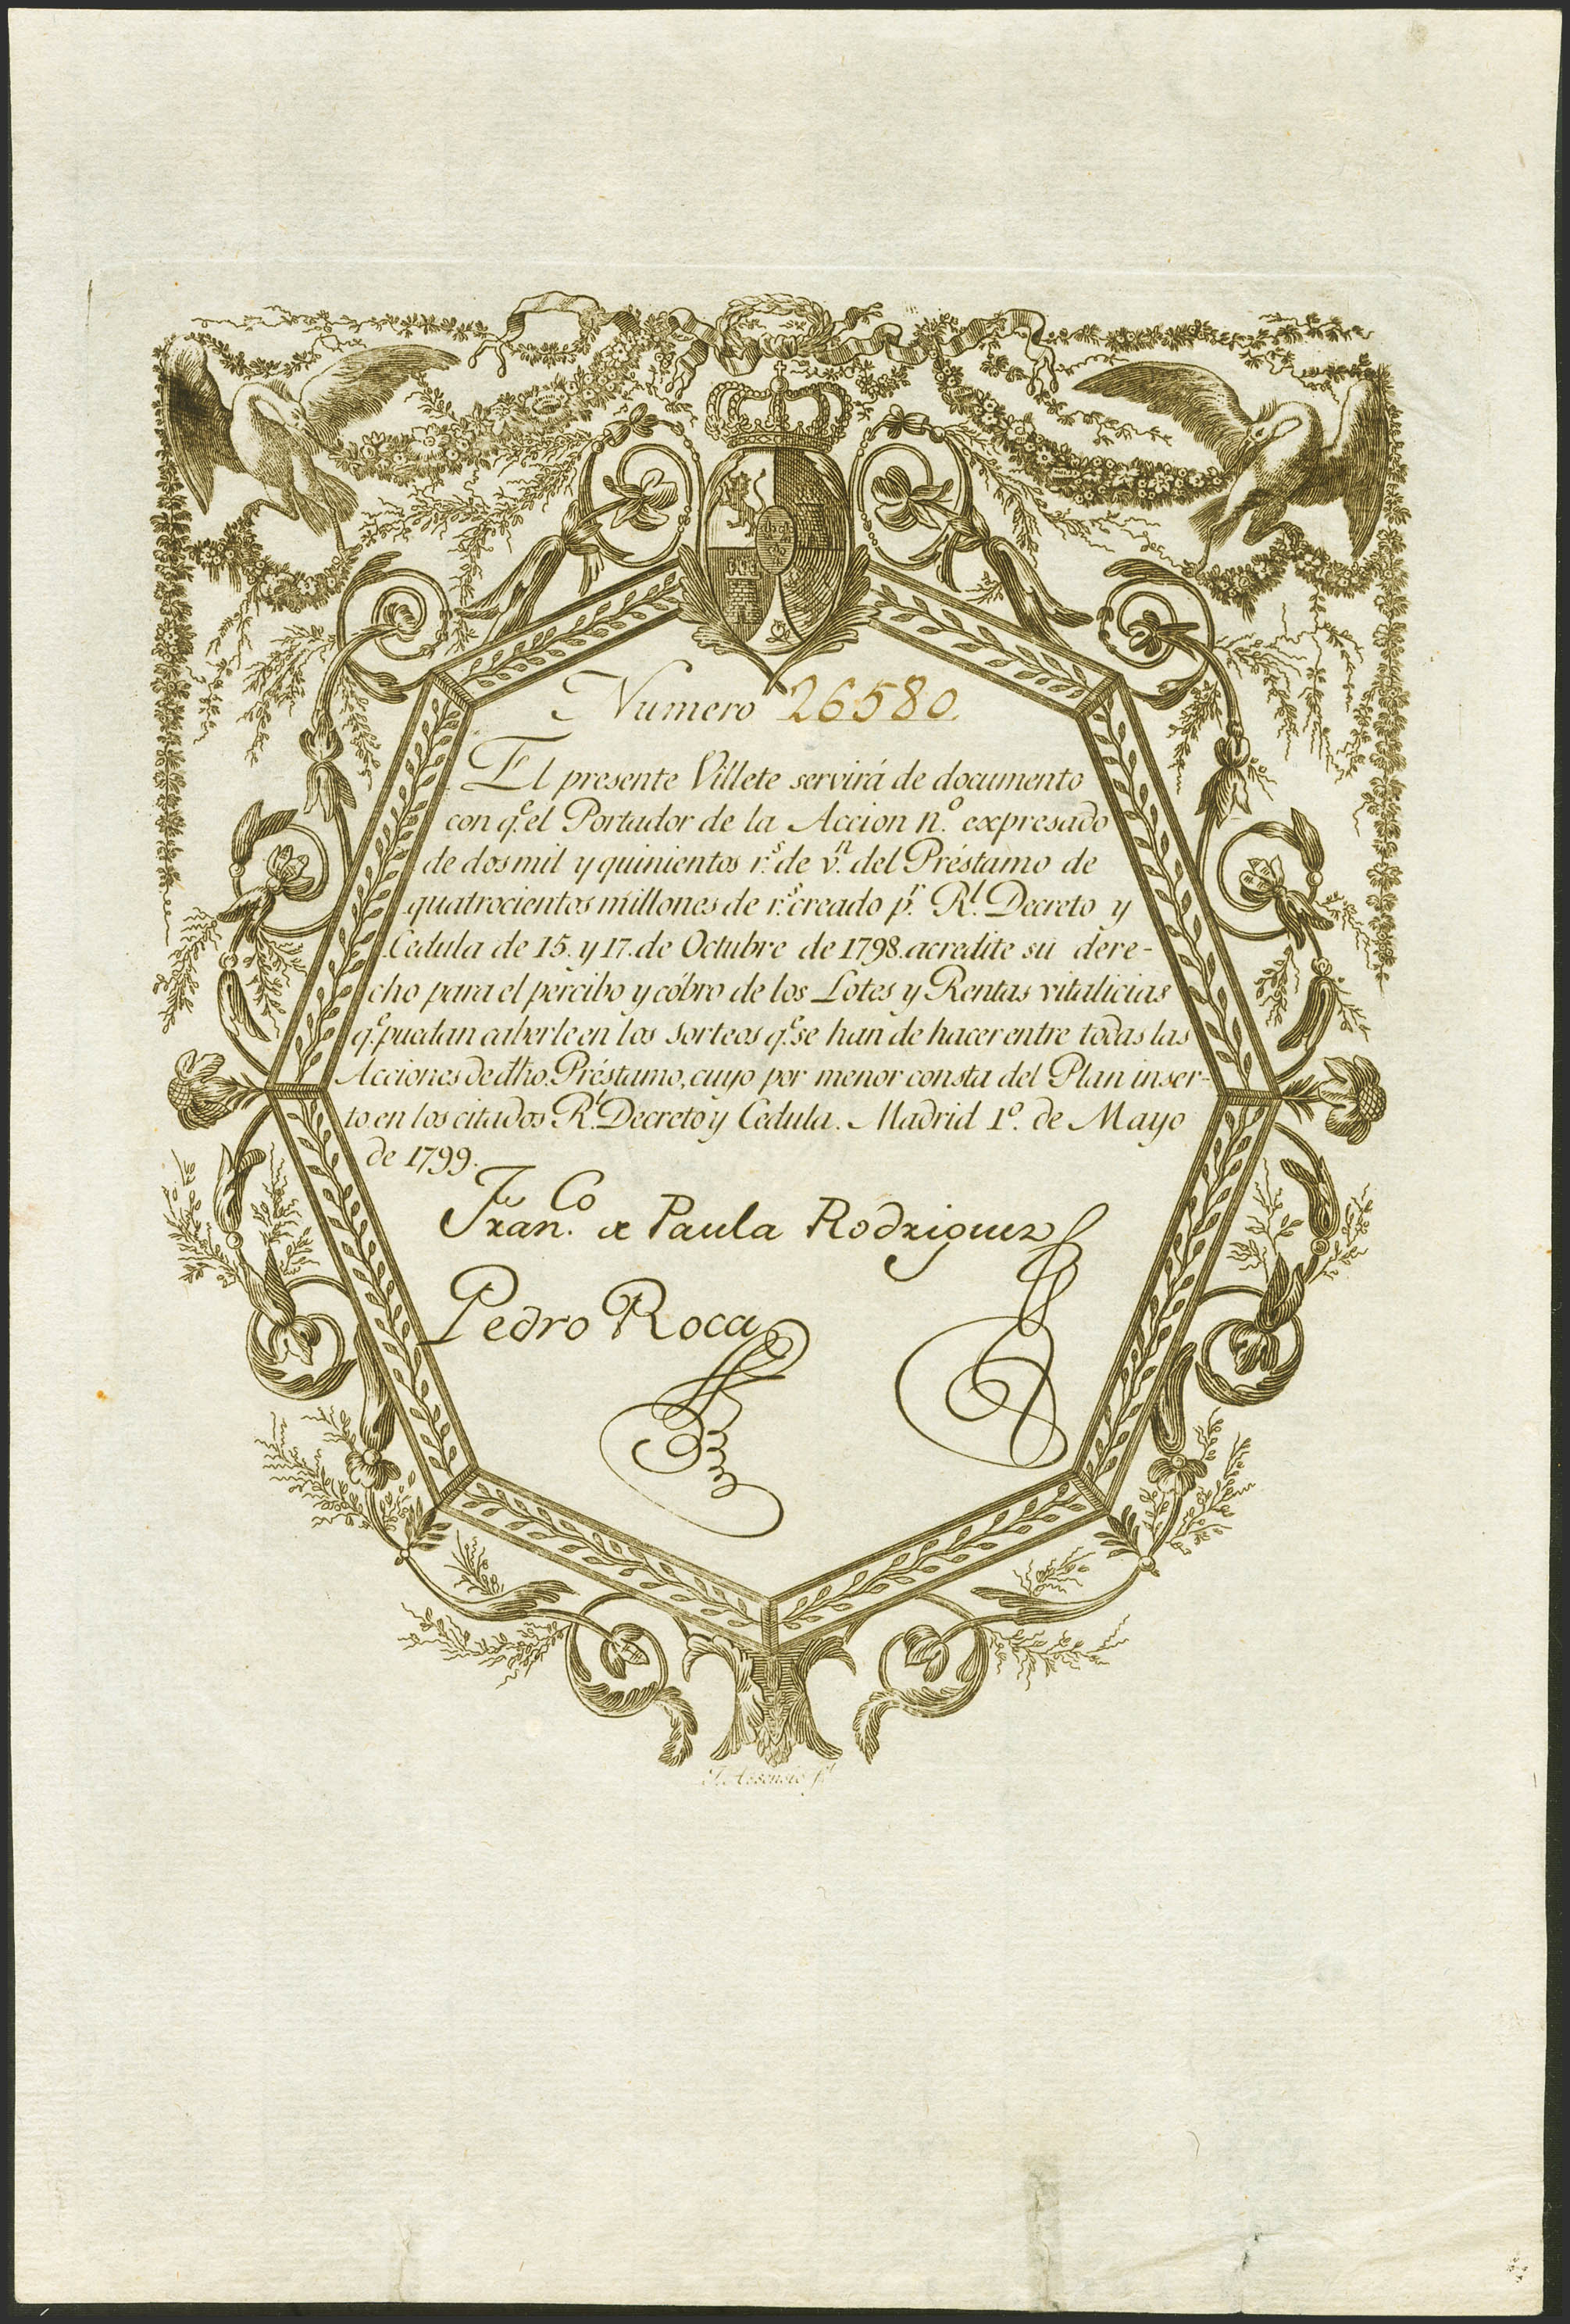 Numero 26580.
El presente Villete servirá de documento
con q.e el Portador de la Accion n.o expresado
de dos mil y quinientos r.s de v.n del Préstamo de
quatrocientos millones de r.s creado p.r R.l Decreto y
Cedula de 15. y 17. de Octubre de 1798. acredite su dere-
cho para el percibo y cóbro de los Lotes y Rentas vitalicias
q.e puedan caberle en los Sorteos q.e se han de hacer entre todas las
Acciones de dho. Préstamo, cuyo por menor consta del Plan inser-
to en los citados R.l Decreto y Cedula. Madrid 1.o de Mayo
de 1799.
Fran.co a Paula Rodriguez
Pedro Roca
J. Assensio f.t